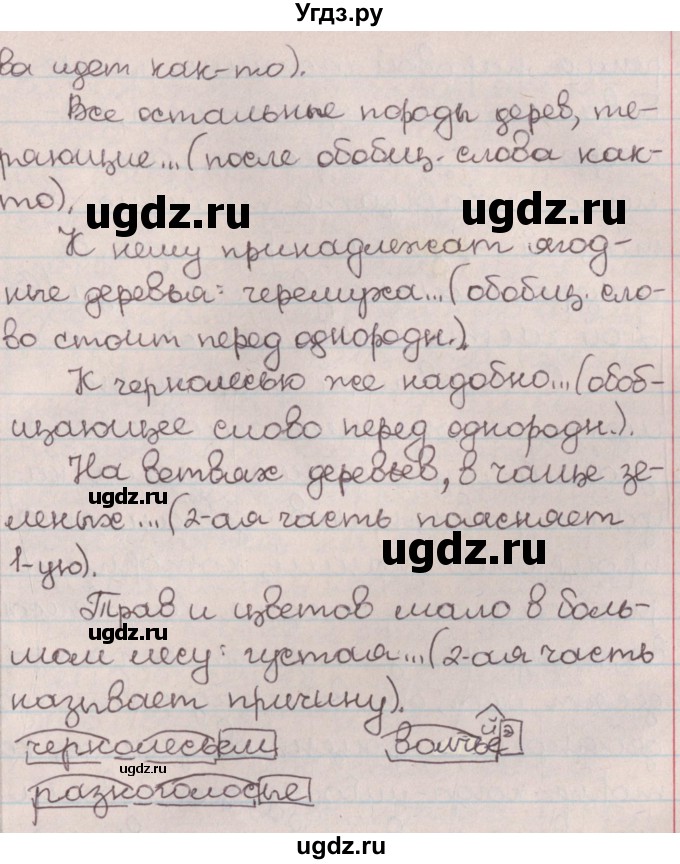 Угдз.ру
ва идет как-то).
Все остальные породы дерев, те-
ряющие...(после обобщ. слова как-
то).
ugdz.ru
ugdz.ru
К нему принадлежат ягод-
ные деревья: черемуха...(обобщ. сло-
во стоит перед однородн.).
К чернолесью же надобно...(обоб-
щающее слово перед однородн.).
На ветвях деревьев, в чаще зе-
ugdz.ru
леных...(2-ая часть поясняет
ugdz.ru
1-ую).
Трав и цветов мало в боль-
ugdz.ru
шом лесу: густая...(2-ая часть
называет причину).
чернолесьем
волчье
й э
ugdz.ru
разноголосые
ugdz.ru